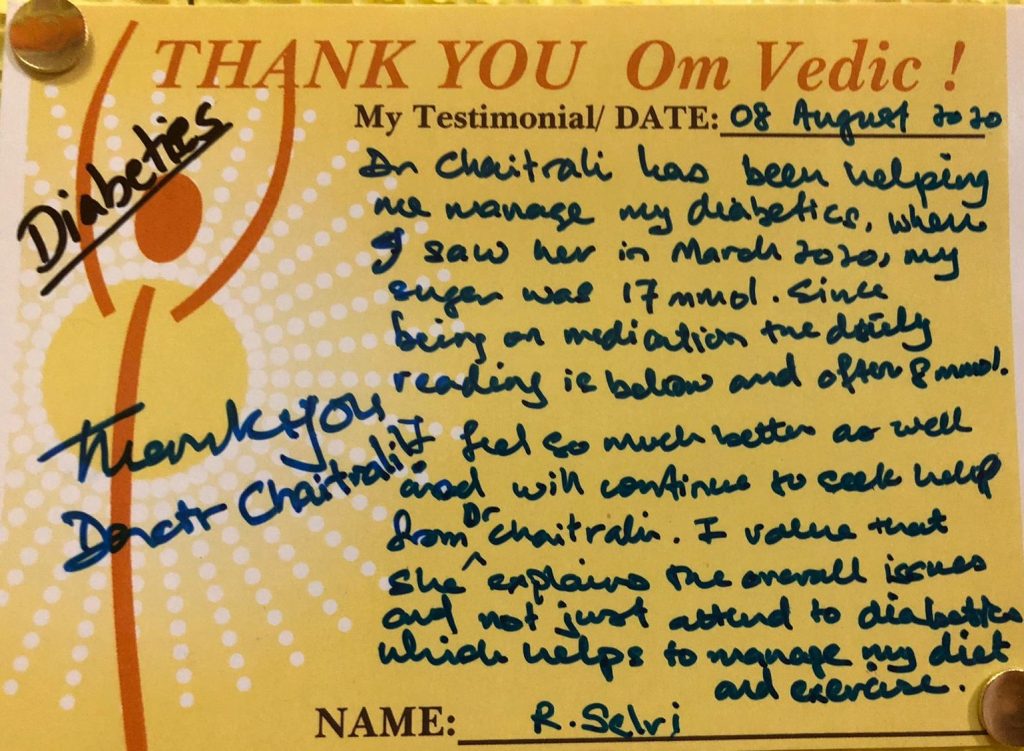 THANK YOU Om Vedic !
My Testimonial/ DATE: 08 August 2020
Diabetics
Dr Chaitrali has been helping
me manage my diabetics, when
I saw her in March 2020, my
sugar was 17 mmol. Since
being on medication the
reading is below and often 8 mmol.
I feel so much better as well
and will continue to seek help
from Dr Chaitrali. I value that
she explains the overall issues
and not just attend to diabetics
which helps to manage my diet
and exercise.
Thank you
Chaitrali
NAME: R. Selvi